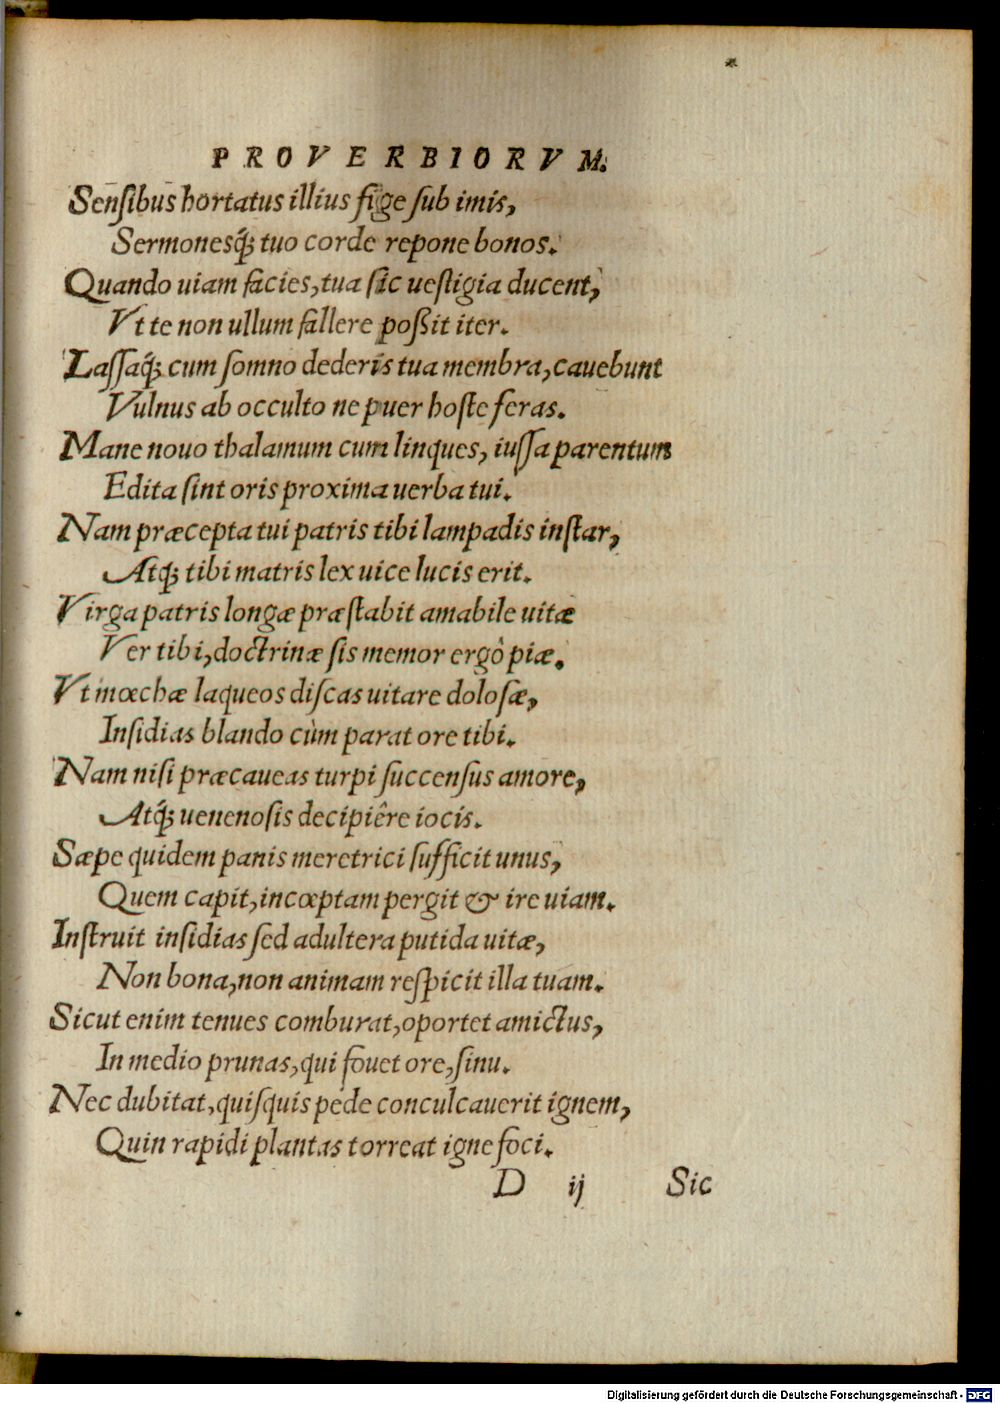 PROVERBIORVM.
Sensibus hortatus illius fige sub imis,
Sermonesq́; tuo corde repone bonos.
Quando uiam facies, tua sic uestigia ducent,
Vt te non ullum fallere poßit iter.
Lassaq́; cum somno dederis tua membra, cauebunt
Vulnus ab occulto ne puer hoste feras.
Mane nouo thalamum cum linques, iussa parentum
Edita sint oris proxima uerba tui.
Nam præcepta tui patris tibi lampadis instar,
Atq́; tibi matris lex uice lucis erit.
Virga patris longæ præstabit amabile uitæ
Ver tibi, doctrinæ sis memor ergô piæ.
Vt mœchæ laqueos discas uitare dolosæ,
Insidias blando cùm parat ore tibi.
Nam nisi præcaueas turpi succensus amore,
Atq́; uenenosis decipiêre iocis.
Sæpe quidem panis meretrici sufficit unus,
Quem capit, incœptam pergit & ire uiam.
Instruit insidias sed adultera putida uitæ,
Non bona, non animam respicit illa tuam.
Sicut enim tenues comburat, oportet amictus,
In medio prunas, qui fouet ore, sinu.
Nec dubitat, quisquis pede conculcauerit ignem,
Quin rapidi plantas torreat igne foci.
D ij Sic
Digitalisierung gefördert durch die Deutsche Forschungsgemeinschaft - DFG